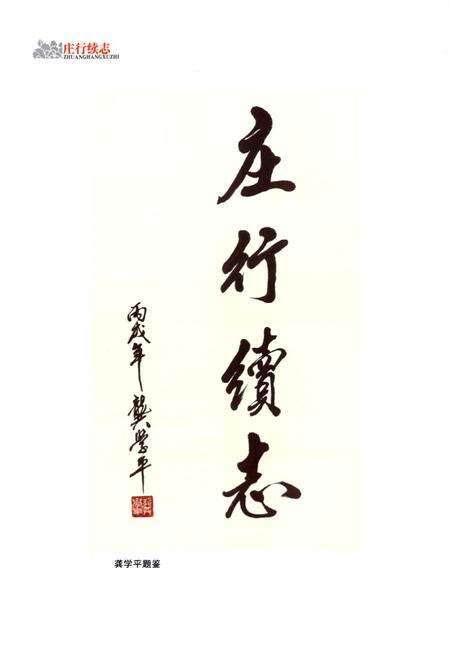 庄行续志
ZHUANGHANGXUZHI
庄行續志
丙戌年龔學平
龚学平题鉴